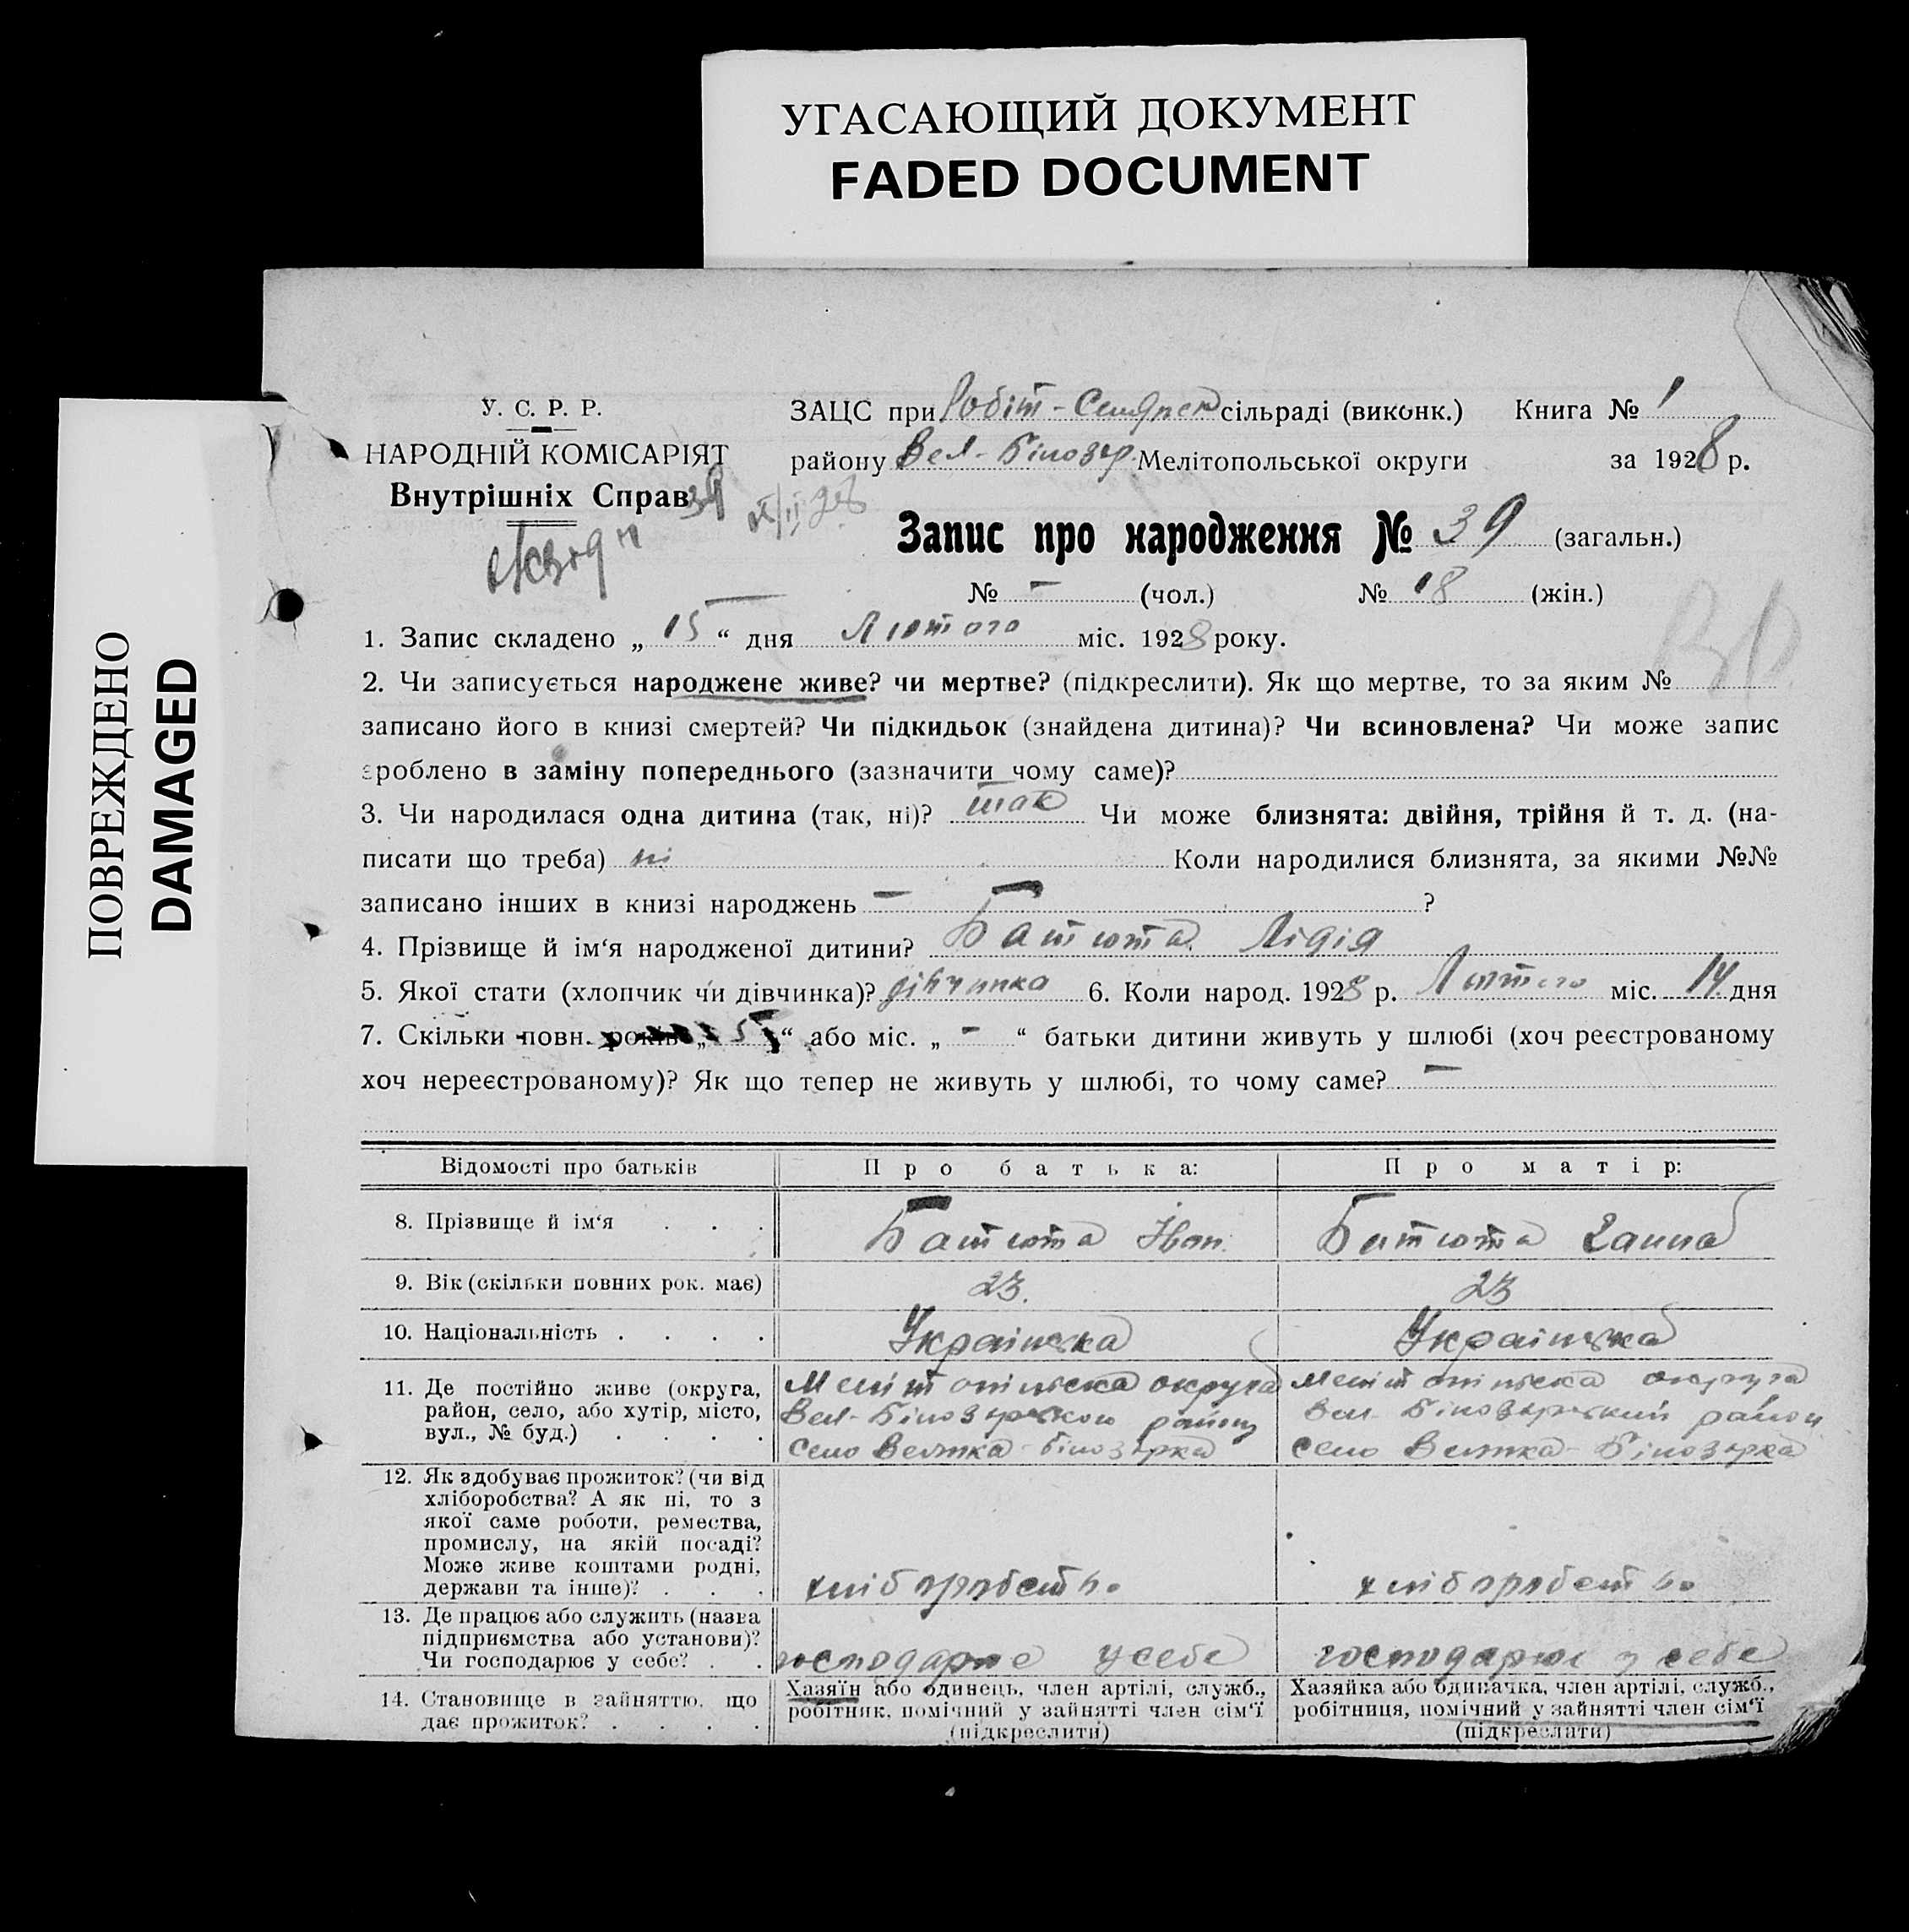 УГАСАЮЩИЙ ДОКУМЕНТ
FADED DOCUMENT
ПОВРЕЖДЕНО
DAMAGED
У. С. Р. Р.
НАРОДНІЙ КОМІСАРІЯТ
Внутрішніх Справ
39
ЗАЦС при Робіт-Селянск сільраді (виконк.) Книга № 1
району Вел-Білозер. Мелітопольської округи за 1928 р.
Запис про народження № 39 (загальн.)
№ – (чол.) № 18 (жін.)
1. Запис складено „ 15 “ дня Лютого міс. 1928 року.
2. Чи записується народжене живе? чи мертве? (підкреслити). Як що мертве, то за яким №
записано його в книзі смертей? Чи підкидьок (знайдена дитина)? Чи всиновлена? Чи може запис
зроблено в заміну попереднього (зазначити чому саме)?
3. Чи народилася одна дитина (так, ні)? так Чи може близнята: двійня, трійня й т. д. (на-
писати що треба) ні Коли народилися близнята, за якими №№
записано інших в книзі народжень – ?
4. Прізвище й ім‘я народженої дитини? Батюта Лідія
5. Якої стати (хлопчик чи дівчинка)? дівчинка 6. Коли народ. 1928 р. Лютого міс. 14 дня
7. Скільки повн. років „ 5 “ або міс. „ – “ батьки дитини живуть у шлюбі (хоч реєстрованому
хоч нереєстрованому)? Як що тепер не живуть у шлюбі, то чому саме? –
Відомості про батьків
Про батька:
Про матір:
8. Прізвище й ім‘я . . .
Батюта Іван
Батюта Ганна
9. Вік (скільки повних рок. має)
23.
23
10. Національність . . . .
Українська
Українська
11. Де постійно живе (округа,
район, село, або хутір, місто,
вул., № буд.) . . . .
Мелітопільська округа
Вел-Білозерського району
село Велика-Білозерка
Мелітопільська округа
Вел-Білозерський район
село Велика-Білозерка
12. Як здобуває прожиток? (чи від
хліборобства? А як ні, то з
якої саме роботи, ремества,
промислу, на якій посаді?
Може живе коштами родні,
держави та інше)? . . .
хліборобство
хліборобство
13. Де працює або служить (назва
підприємства або установи)?
Чи господарює у себе? . .
господарює у себе
господарює у себе
14. Становище в зайняттю, що
дає прожиток? . . . .
Хазяїн або одинець, член артілі, служб.,
робітник, помічний у зайнятті член сім‘ї
(підкреслити)
Хазяйка або одиначка, член артілі, служб.,
робітниця, помічний у зайнятті член сім‘ї
(підкреслити)